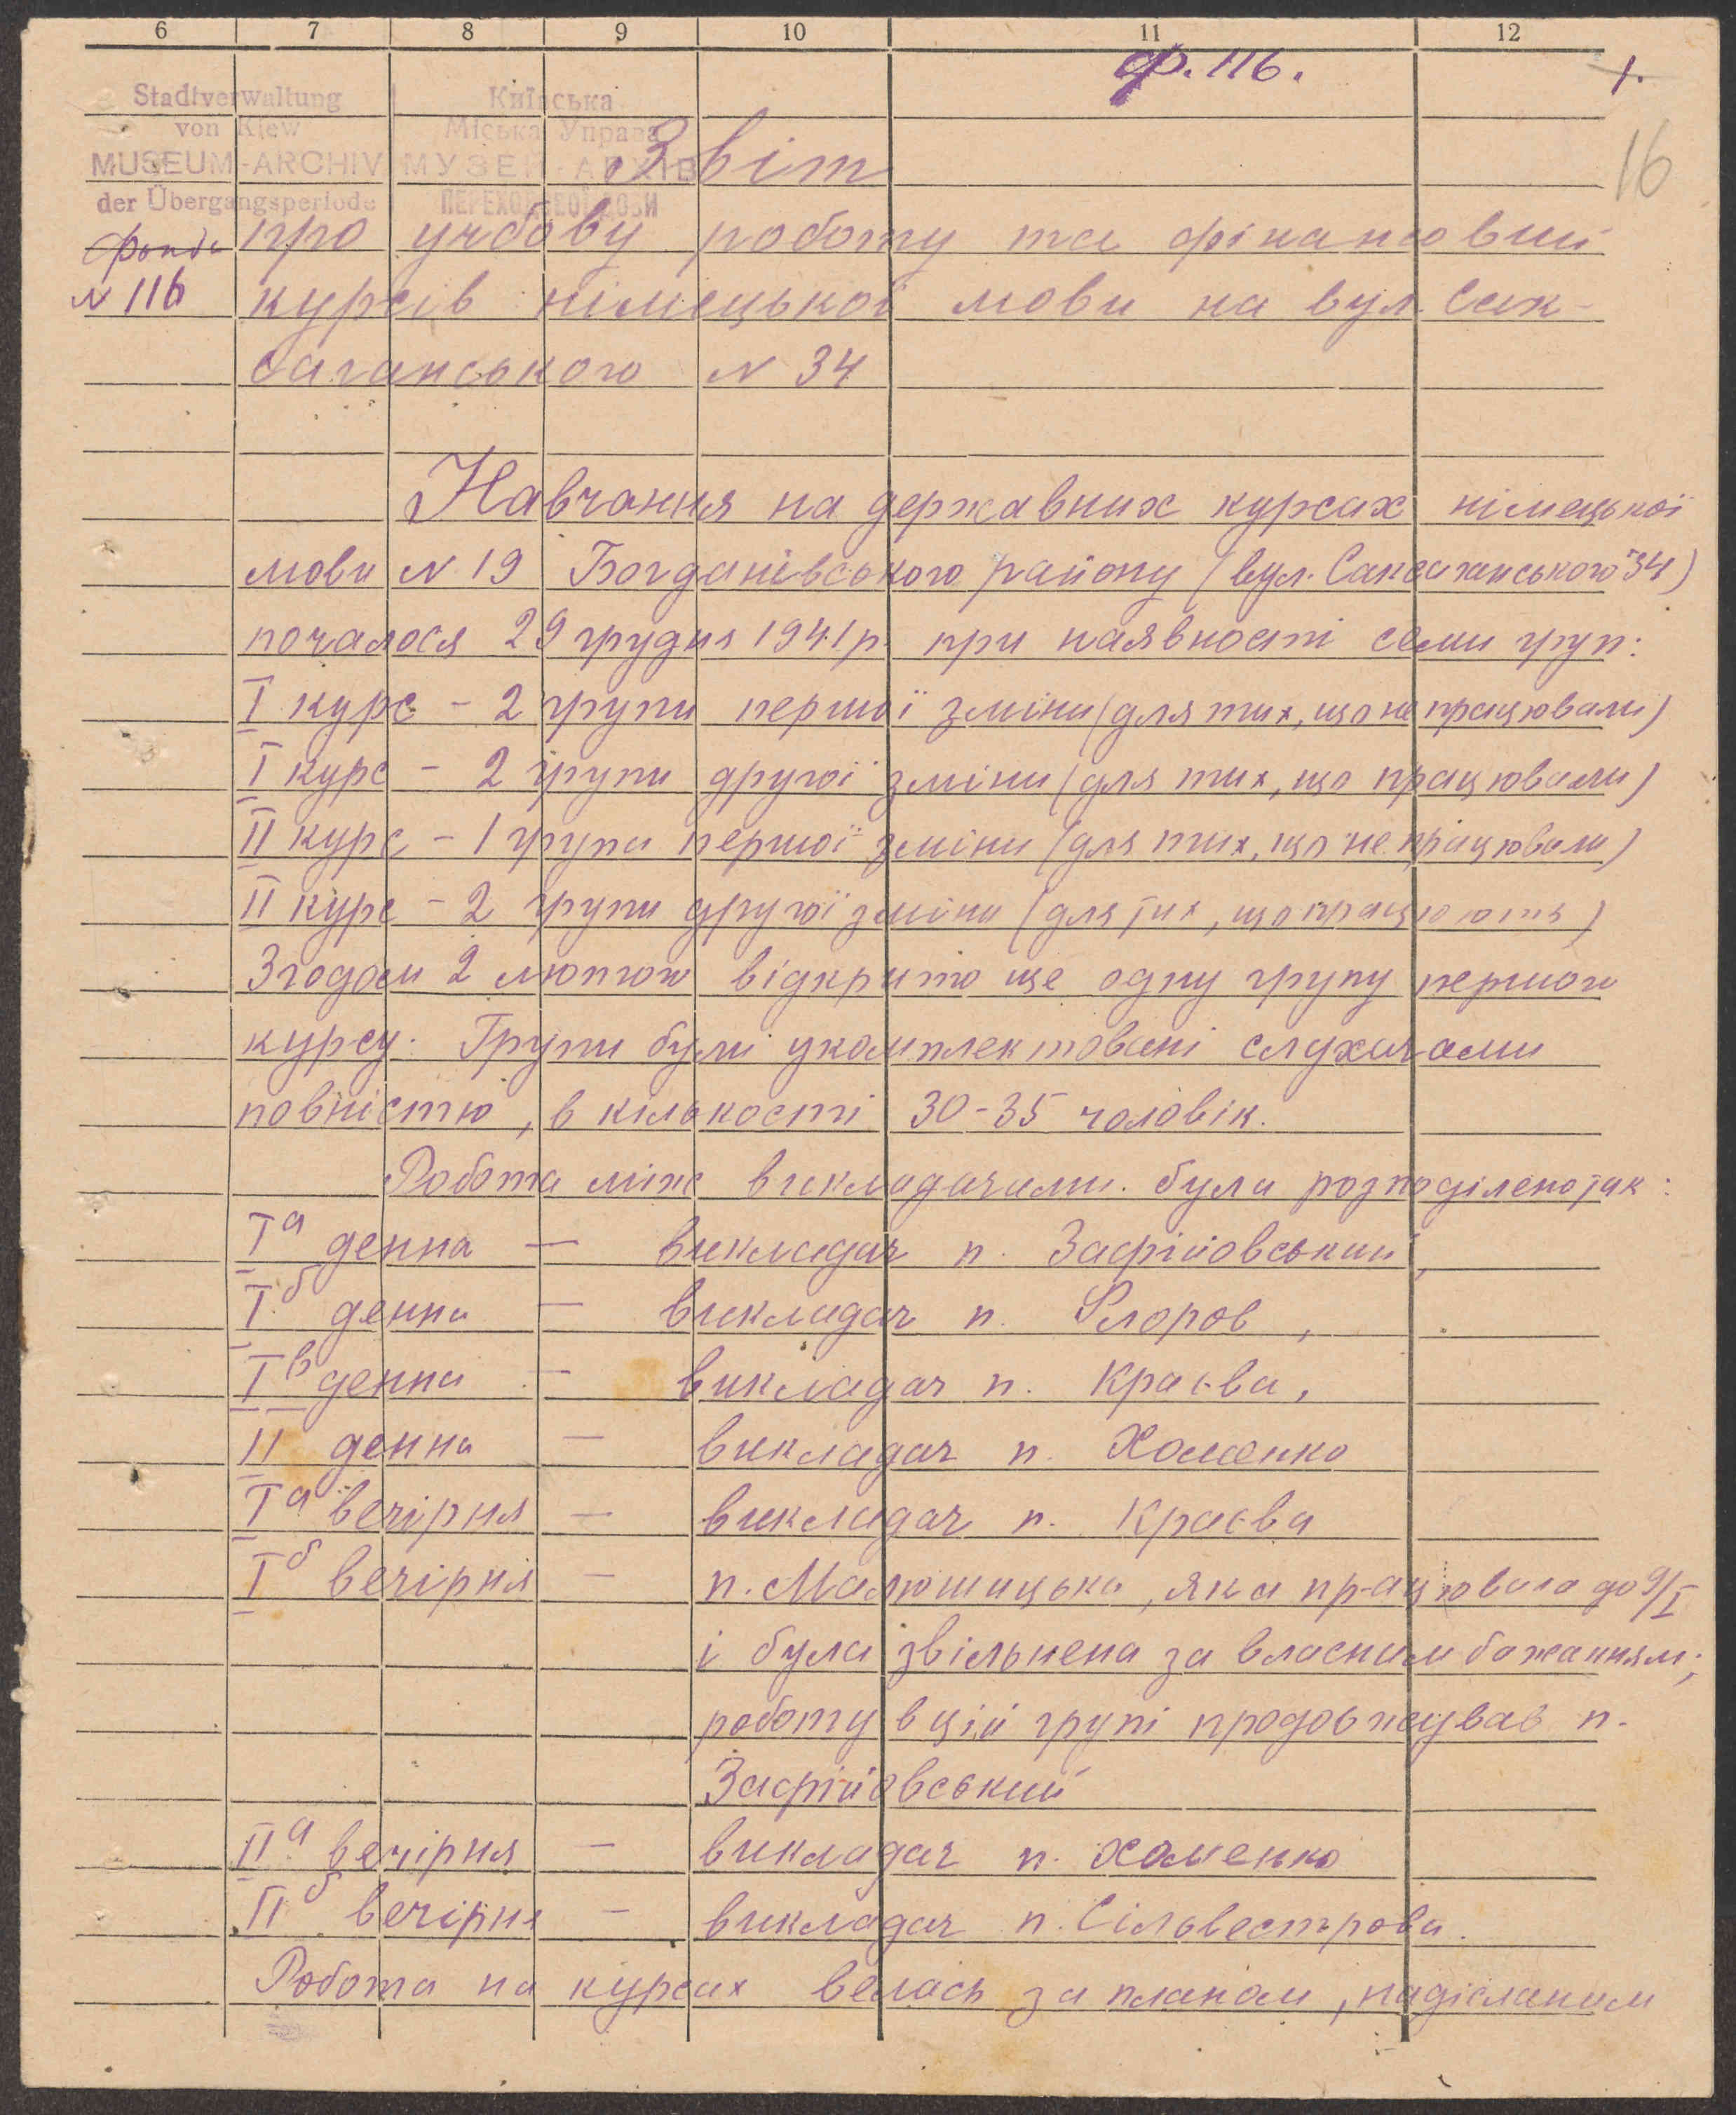 6 7 8 9 10 11 12
ф. 116. 1.
16
Stadtverwaltung
von Kiew
MUSEUM-ARCHIV
der Übergangsperiode
Київська
Міська Управа
МУЗЕЙ-АРХІВ
ПЕРЕХОДОВОЇ ДОБИ
фонд
N 116
Звіт
про учбову роботу та фінансовий
курсів німецької мови на вул. Сак-
саганського N 34
Навчання на державних курсах німецької
мови N 19 Богданівського району (вул. Саксаганського 34)
почалося 29 грудня 1941 р. при наявності семи груп:
I курс - 2 групи першої зміни (для тих, що не працювали)
I курс - 2 групи другої зміни (для тих, що працювали)
II курс - 1 група першої зміни (для тих, що не працювали)
II курс - 2 групи другої зміни (для тих, що працюють)
Згодом 2 лютого відкрито ще одну групу першого
курсу. Групи були укомплектовані слухачами
повністю, в кількості 30-35 чоловік.
Робота між викладачами була розподілено так:
Iа денна — викладач п. Зафійовський,
Iб денна — викладач п. Флоров,
Iв денна - викладач п. Краєва,
II денна — викладач п. Хоменко
Iа вечірня — викладач п. Краєва
Iб вечірня — п. Малюшицька, яка працювала до 9/I
і була звільнена за власним бажанням;
роботу в цій групі продовжував п.
Зафійовський
IIа вечірня — викладач п. Хоменко
IIб вечірня — викладач п. Сільвестрова.
Робота на курсах велась за планом, надісланим